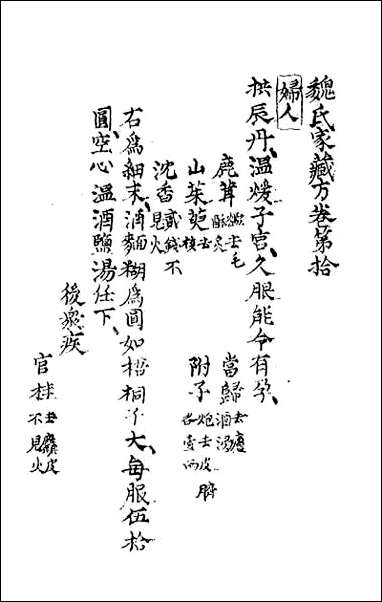 魏氏家藏方卷第拾
婦人
拱辰丹、温煖子宫、久服能令有孕、
鹿茸 去毛 酥炙
當歸 去蘆 酒浸
山茱萸 去核
附子 炮去皮臍 各壹两
沈香 貳錢不見火
官桂 去麄皮 不見火
右為細末、酒麵糊為圓如梧桐子大、每服伍拾
圓、空心温酒鹽湯任下、
後衆疾